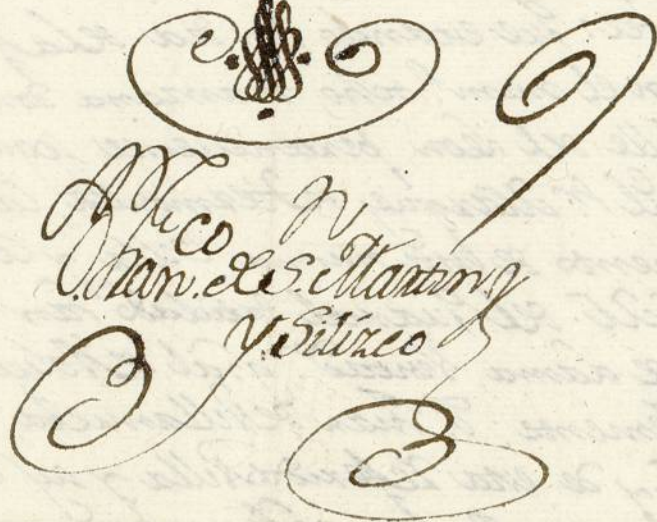 Franco. de S. Martin
y Siliceo